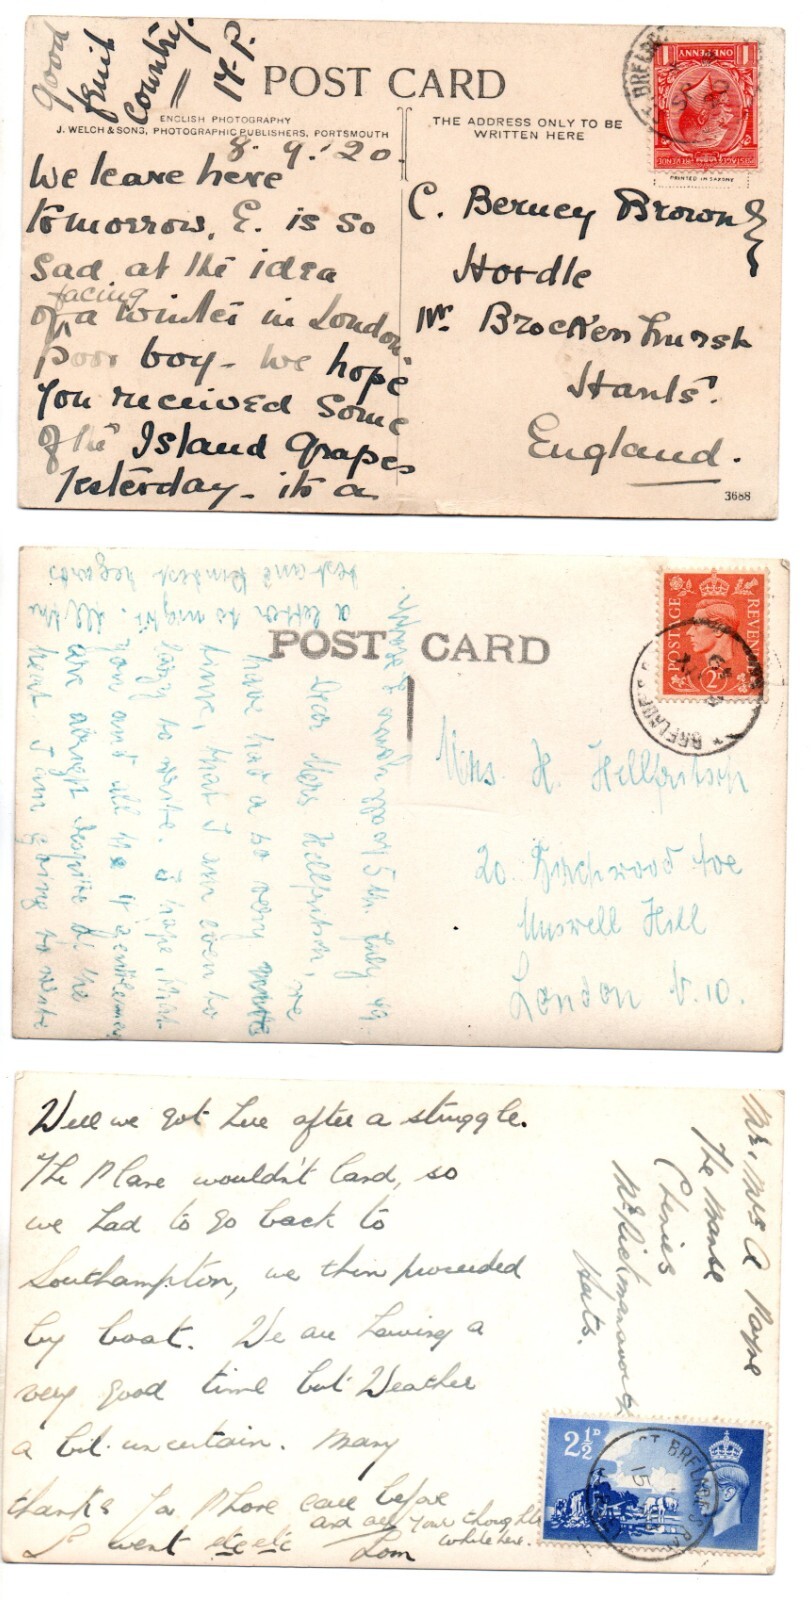 good
fruit
country.
H.P.
POST CARD
ENGLISH PHOTOGRAPHY
J. WELCH & SONS, PHOTOGRAPHIC PUBLISHERS, PORTSMOUTH
THE ADDRESS ONLY TO BE
WRITTEN HERE
8. 9. '20.
We leave here
tomorrow, E. is so
sad at the idea
facing
of a winter in London
Poor boy - we hope
you received some
of the Island grapes
yesterday - its a
C. Berney Brown
Hordle
Nr. Brockenhurst
Hants.
England.
3688
ONE PENNY
PRINTED IN SAXONY
POST CARD
POSTAGE
REVENUE
2D
BRELADE'S
5th July 49.
Dear Mrs Hellfritsch, we
have had a so very
time, that I am even to
lazy to write. I hope, that
you and all the gentlemen
are alright despite of the
heat. I am going to write
a letter to night. All the
best and kindest regards
Mrs H. Hellfritsch
20 Birchwood Ave
Muswell Hill
London N. 10.
Well we got here after a struggle.
The Plane wouldn't land, so
we had to go back to
Southampton, we then proceeded
by boat. We are having a
very good time but Weather
a bit uncertain. Many
thanks for Phone call before
I went etc etc
and all your thoughts
while here.
Tom
Mr. Mrs A Payne
The Manse
Chenies
Nr Rickmansworth
Herts.
2½D
ST BRELADE'S
15